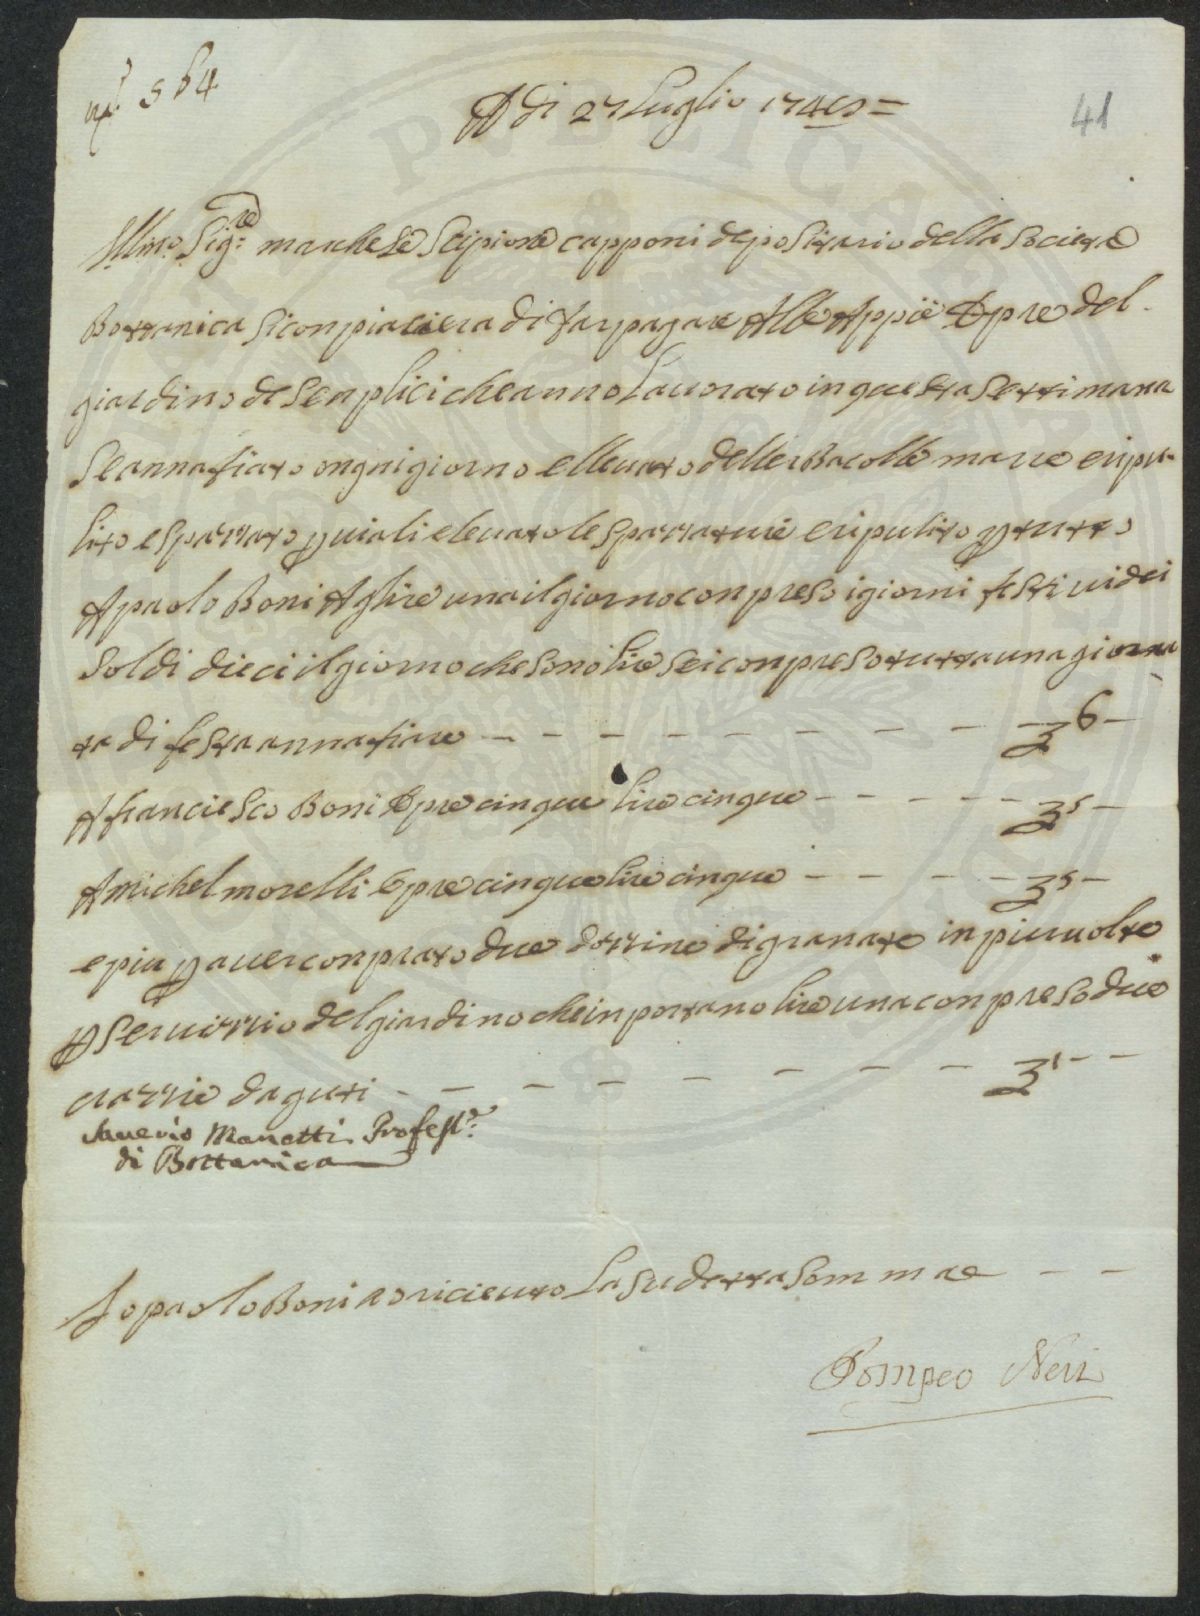 n.º 564
A di 27 luglio 174
41
Illmo. Sig.re marchese Scipione capponi depositario della società
Bottanica si conpiaciera di far pagare Alle Appiè Opre del
giardino de senplici che anno lauorato in questa settimana
se annafiato ongni giorno e lleuato delle
lito e sparrato p uiali e leuato le sparrature e ripulito p tutto
A paolo Boni A lire una il giorno conpreso i giorni festiui dei
soldi dieci il giorno che sono lire sei conpreso tutta una giorna
ta di festa annafiare - - - - - - - - 6 -
A franciesco Boni Opre cinque lire cinque - - - - - 5 -
A michel morelli Opre cinque lire cinque - - - - - 5 -
e piu p auer conprato due dozzine di granate in piu uolte
p seruizzio del giardino che inportano lire una conpreso due
da guti - - - - - - - - 1 - -
Sauerio Manetti Profess.re
di Bottanica
Io paolo Boni o riceuto la sudetta somma e - - -
Pompeo Neri